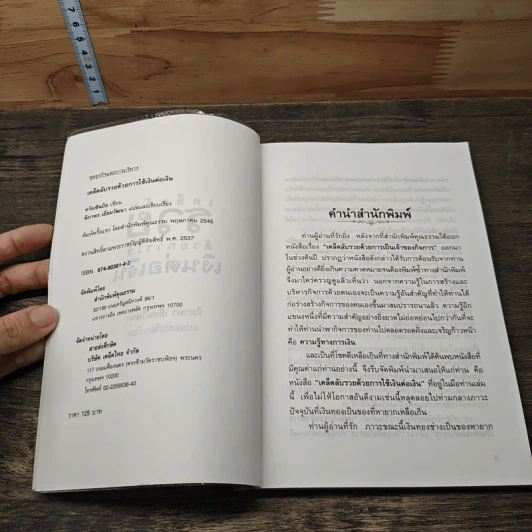 7
6
5
4
3
2
1
ชุดธุรกิจและการบริหาร
เคล็ดลับรวยด้วยการใช้เงินต่อเงิน
หวังเซินปิง เขียน
ทิภาพร เยี่ยมวัฒนา แปลและเรียบเรียง
พิมพ์ครั้งแรก โดยสำนักพิมพ์คุณธรรม พฤษภาคม 2545
สงวนสิทธิ์ตามพระราชบัญญัติลิขสิทธิ์ พ.ศ. 2537
ISBN
จัดพิมพ์โดย
สำนักพิมพ์คุณธรรม
กรุงเทพฯ 10700
จัดจำหน่ายโดย
สายส่งศึกษิต
บริษัท เคล็ดไทย จำกัด
117 ถนนเฟื่องนคร (ตรงข้ามวัดราชบพิธฯ) พระนคร
กรุงเทพฯ 10200
โทรศัพท์ 02-2259536-40
ราคา 125 บาท
คำนำสำนักพิมพ์
ท่านผู้อ่านที่รักยิ่ง หลังจากที่สำนักพิมพ์คุณธรรมได้ออก
หนังสือเรื่อง "เคล็ดลับรวยด้วยการเป็นเจ้าของกิจการ" ออกมา
ในช่วงต้นปี ปรากฏว่าหนังสือดังกล่าวได้รับการต้อนรับจากท่าน
ผู้อ่านอย่างดียิ่งเกินความคาดหมายจนต้องพิมพ์ซ้ำทางสำนักพิมพ์
จึงมาใคร่ครวญดูแล้วเห็นว่า นอกจากความรู้ในการสร้างและ
บริหารกิจการด้วยตนเองจะเป็นความรู้อันสำคัญที่ทำให้ท่านได้
ก่อร่างสร้างกิจการของตนเองขึ้นมาสมปรารถนาแล้ว ความรู้อีก
แขนงหนึ่งที่มีความสำคัญอย่างยิ่งยวดไม่ย่อหย่อนไปกว่ากันที่จะ
ทำให้ท่านนำพากิจการของท่านไปตลอดรอดฝั่งและเจริญก้าวหน้า
คือ ความรู้ทางการเงิน
และเป็นที่โชคดีเหลือเกินที่ทางสำนักพิมพ์ได้ค้นพบหนังสือที่
มีคุณค่าแก่ท่านอย่างนี้ จึงรีบจัดพิมพ์นำมาเสนอให้แก่ท่าน คือ
หนังสือ "เคล็ดลับรวยด้วยการใช้เงินต่อเงิน" ที่อยู่ในมือท่านเล่ม
นี้ เพื่อไม่ให้โอกาสอันดีงามเช่นนี้หลุดลอยไปท่ามกลางภาวะ
ปัจจุบันที่เงินทองเป็นของที่หายากเหลือเกิน
ท่านผู้อ่านที่รัก ภาวะขณะนี้เงินทองช่างเป็นของหายาก